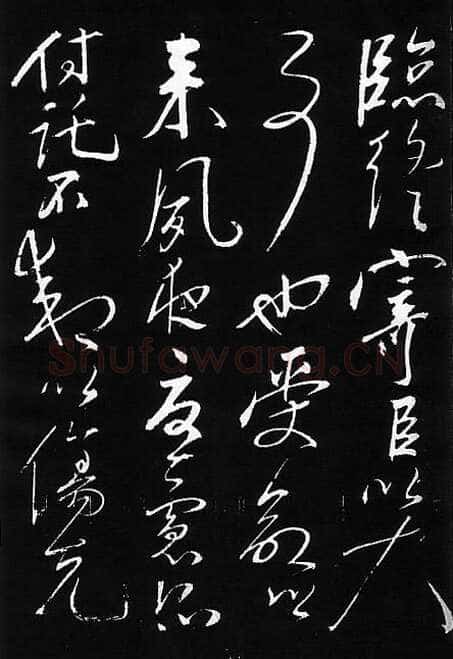 臨終寄臣以大
事也受命以
来夙夜憂慮恐
付託不效以傷先
Shufawang.CN